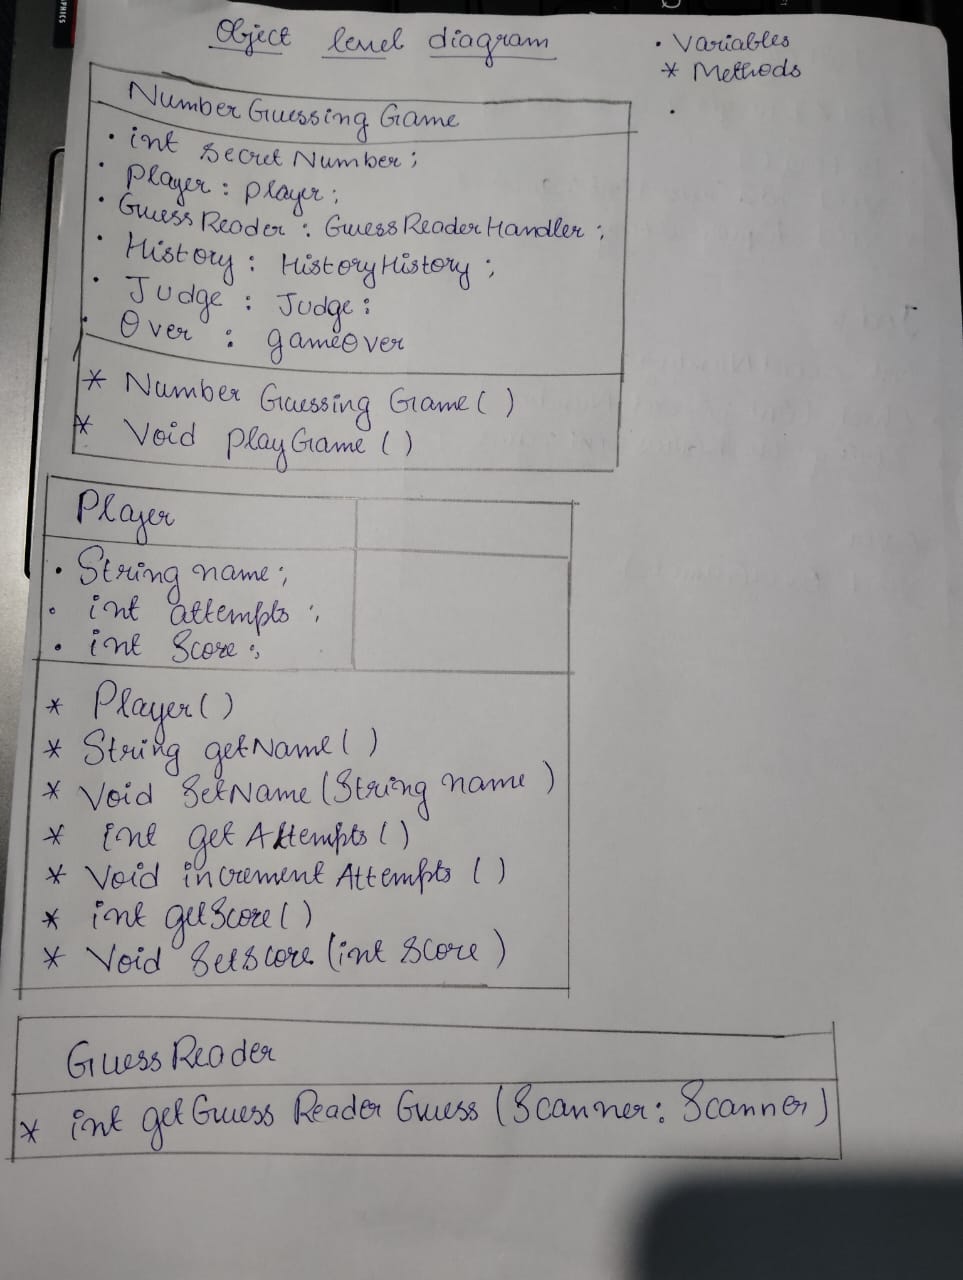 Object level diagram
• Variables
* Methods
Number Guessing Game
• int Secret Number;
• Player : player;
• Guess Reader : GuessReaderHandler;
• History : HistoryHistory;
• Judge : Judge:
• Over : gameOver
* Number Guessing Game()
* Void playGame()
Player
• String name;
• int attempts;
• int Score;
* Player()
* String getName()
* Void SetName(String name)
* int getAttempts()
* Void increment Attempts()
* int getScore()
* Void SetScore(int Score)
Guess Reader
* int getGuess Reader Guess (Scanner: Scanner)